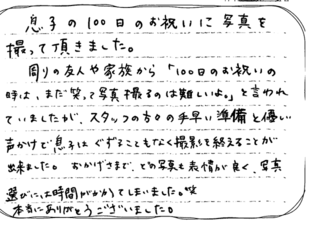 息子の100日のお祝いに写真を
撮って頂きました。
周りの友人や家族から「100日のお祝いの
時は、まだ笑って写真撮るのは難しいよ。」と言われ
ていましたが、スタッフの方々の手早い準備と優しい
声かけで息子はぐずることもなく撮影を終えることが
出来ました。おかげさまで、どの写真も表情が良く、写真
選びには時間がかかってしまいました。笑
本当にありがとうございました。